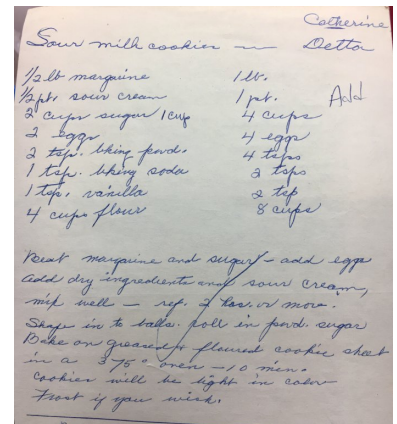 Catherine
Sour milk cookies — Detta
1/2 lb margarine 1 lb.
1/2 pt. sour cream 1 pt. Add
2 cups sugar 1 cup 4 cups
2 eggs 4 eggs
2 tsp. bking powd. 4 tsps
1 tsp. bking soda 2 tsps
1 tsp. vanilla 2 tsp
4 cups flour 8 cups
Beat margarine and sugar - add eggs
add dry ingredients and sour cream,
mix well — ref. 2 hrs. or more.
Shape in to balls. roll in powd. sugar
Bake on greased + floured cookie sheet
in a 375° oven - 10 min.
cookies will be light in color
Frost if you wish.